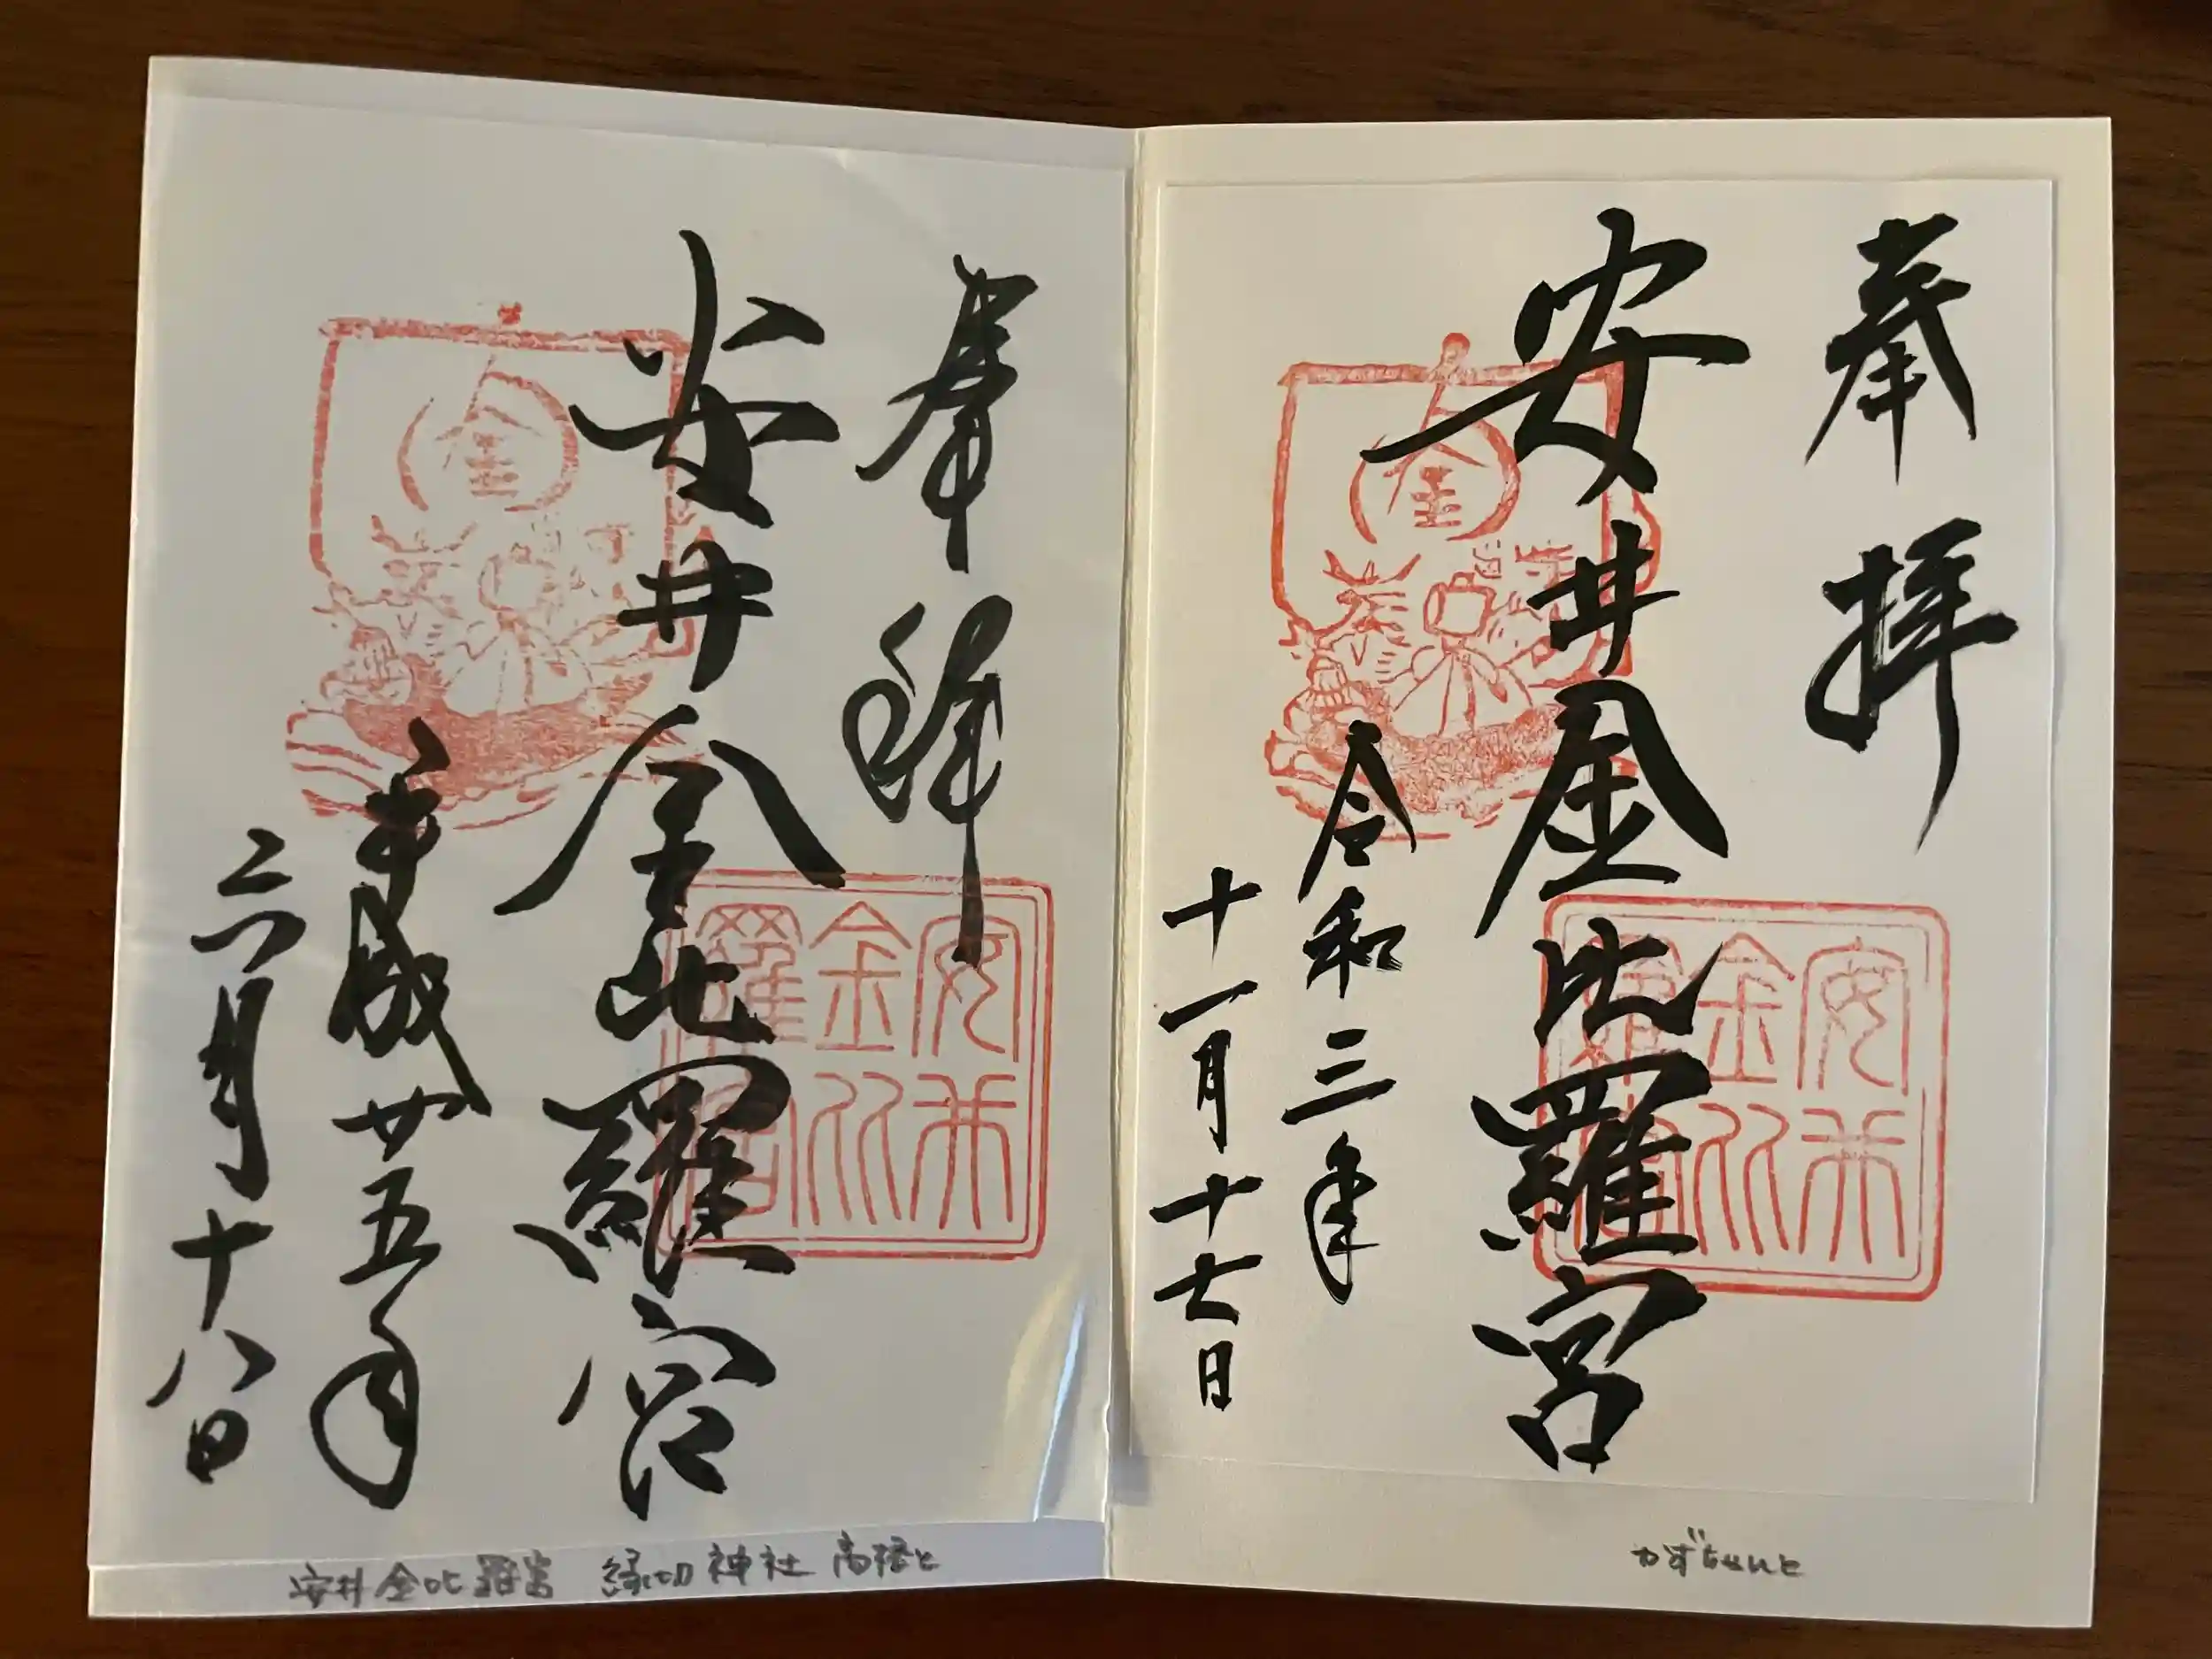 奉拝
安井金比羅宮
令和三年
十一月十七日
かずちゃんと
奉拝
安井金比羅宮
平成廿五年
六月十八日
安井金比羅宮 縁切神社 高橋と
金
安井
金比
羅宮
金
安井
金比
羅宮